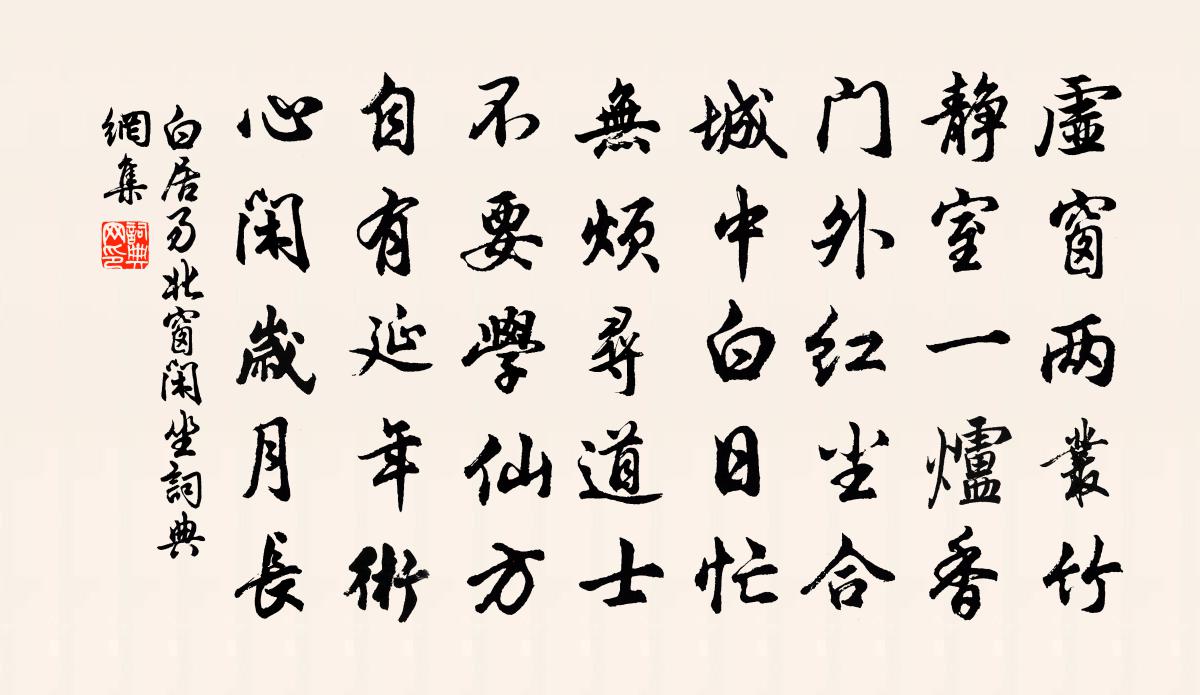 虛窗两叢竹
静室一爐香
门外红尘合
城中白日忙
無煩尋道士
不要學仙方
自有延年術
心闲歳月長
白居易北窗闲坐詞典
網集
詞典
网印